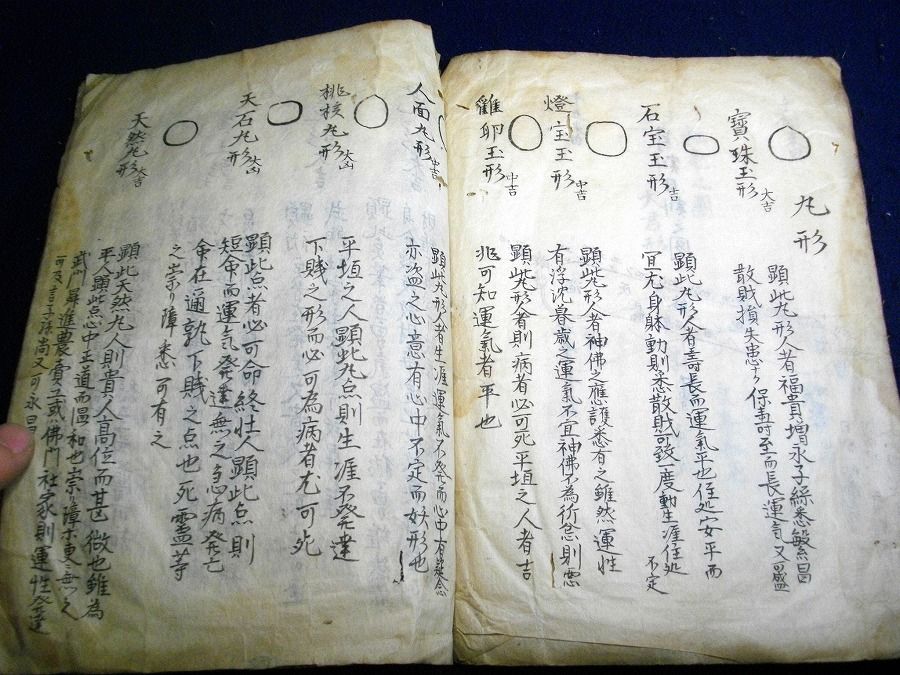 丸形
寳珠玉形 大吉
顕此丸形人者福貴増永子綵悉繁昌
散賎損失患少ク保壽命至而長運気又盛
石宝玉形 吉
顕此丸形人者壽長而運氣平也住処安平而
宜尤身躰動則悉散賎可致一度動生涯住処
不定
燈宝玉形 中吉
顕此丸形人者神佛之應護悉有之雖然運性
有浮沈暮歳之運氣不宜神佛不為祈念則悪
雞卵玉形 中吉
顕此丸形人者則病者必可死平垣之人者吉
兆可知運氣者平也
人面丸形 中吉
顕此丸形人者生涯運氣不発而心中有疑念
亦盗之心意有心中不定而妖形也
桃核丸形 大凶
平垣之人顕此丸点則生涯不発達
下賎之形而必可為病者尤可死
天石丸形 大凶
顕此点者必可命終壮人顕此点則
短命而運氣発達無之急病発亡
命在邇孰下賎之点也死霊等
之祟リ障悉可有之
天然丸形 大吉
顕此天然丸人則貴人高位而甚微也雖為
平人顕此点心中正道而温和也祟リ障更無之
武門昇進農賣工或佛門社家則運性発達
可及言子孫尚又可永昌